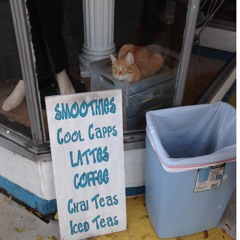 SMOOTHIES
COOL CAPPS
LATTES
COFFEE
CHAI TEAS
ICED TEAS